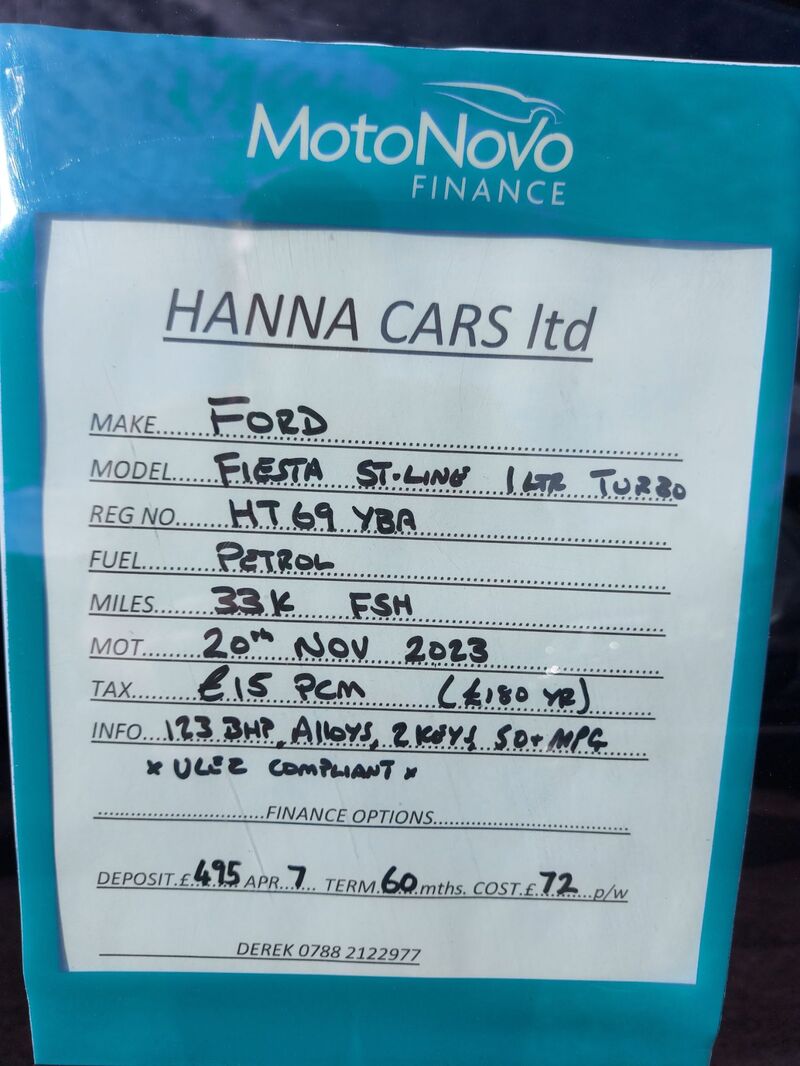 MotoNovo
FINANCE
HANNA CARS ltd
MAKE...... FORD
MODEL.... FIESTA ST-LINE 1 LTR TURBO
REG NO..... HT69 YBA
FUEL...... PETROL
MILES...... 33K FSH
MOT...... 20th NOV 2023
TAX...... £15 PCM (£180 YR)
INFO... 123 BHP, ALLOYS, 2 KEYS, 50+ MPG
x ULEZ COMPLIANT x
FINANCE OPTIONS
DEPOSIT.£.495 APR...7... TERM.60.mths. COST.£.72.....p/w
DEREK 0788 2122977